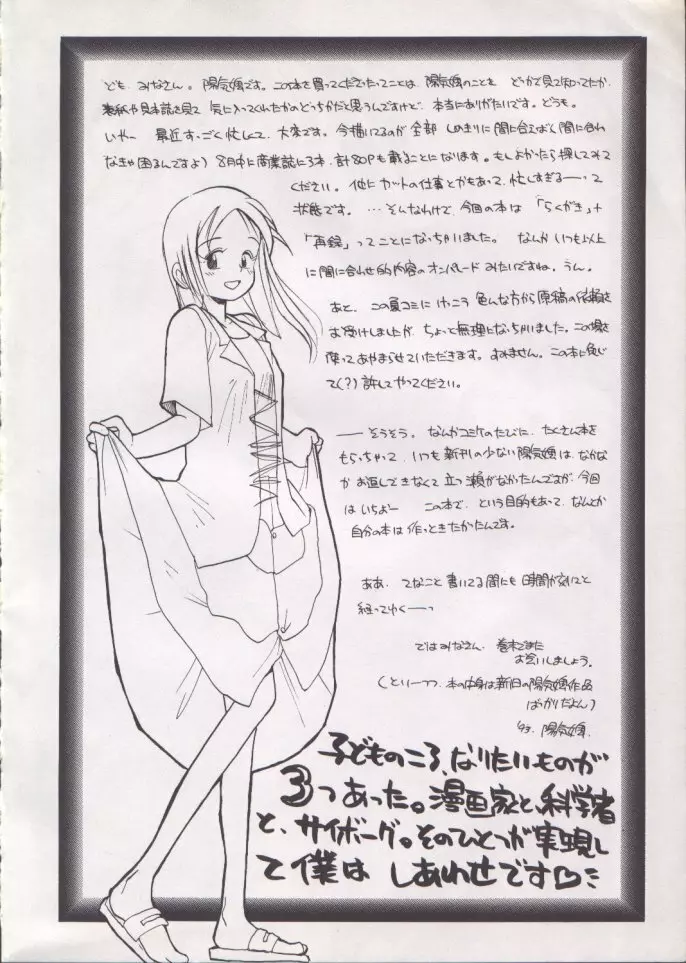 ども、みなさん。陽気婢です。この本を買ってくださったってことは、陽気婢のことを どっかで見て知ってたか、
表紙や見本誌を見て 気に入ってくれたかのどっちかだと思うんですけど、本当にありがたいです。どうも。
いやー 最近すっごく忙しくて、大変です。今描いてるのが全部 しめきりに間に合えばく間に合わ
なきゃ困るんですよ）8月中に商業誌に3本、計80Pも載ることになります。もしよかったら探してみて
ください。他にカットの仕事とかもあって、忙しすぎるーって
状態です。…そんなわけで、今回の本は「らくがき」+
「再録」ってことになっちゃいました。なんか いつも以上
に間に合わせ的内容のオンパレードみたいですね。うん。
あと、この夏コミにけっこう色んな方から原稿の依頼を
お受けしましたが、ちょっと無理になっちゃいました。この場を
使ってあやまらせていただきます。すみません。この本に免じ
て(?)許してやってください。
——そうそう。なんかコミケのたびに、たくさん本を
もらっちゃって、いつも新刊の少ない陽気婢は、なかなか
お返しできなくて立つ瀬がなかったんですが、今回
はいちおー この本で、という目的もあって、なんとか
自分の本は作っときたかったんです。
ああ、てなこと書いてる間にも時間が刻々と
経ってゆくーっ
ではみなさん、巻末でまた
お会いしましょう。
(といーつつ、本の中身は新旧の陽気婢作品
ばっかりだよん)
'93. 陽気婢.
子どものころ、なりたいものが
3つあった。漫画家と、科学者
と、サイボーグ。そのひとつが実現し
て僕は しあわせです♡